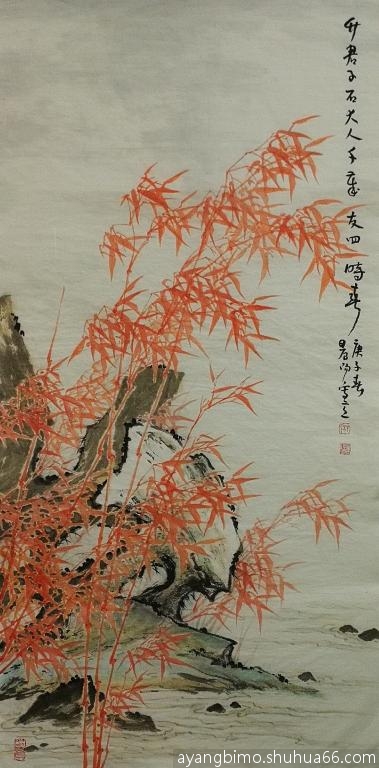 竹君子石大人千歲友四時春
庚子春
ayangbimo.shuhua66.com